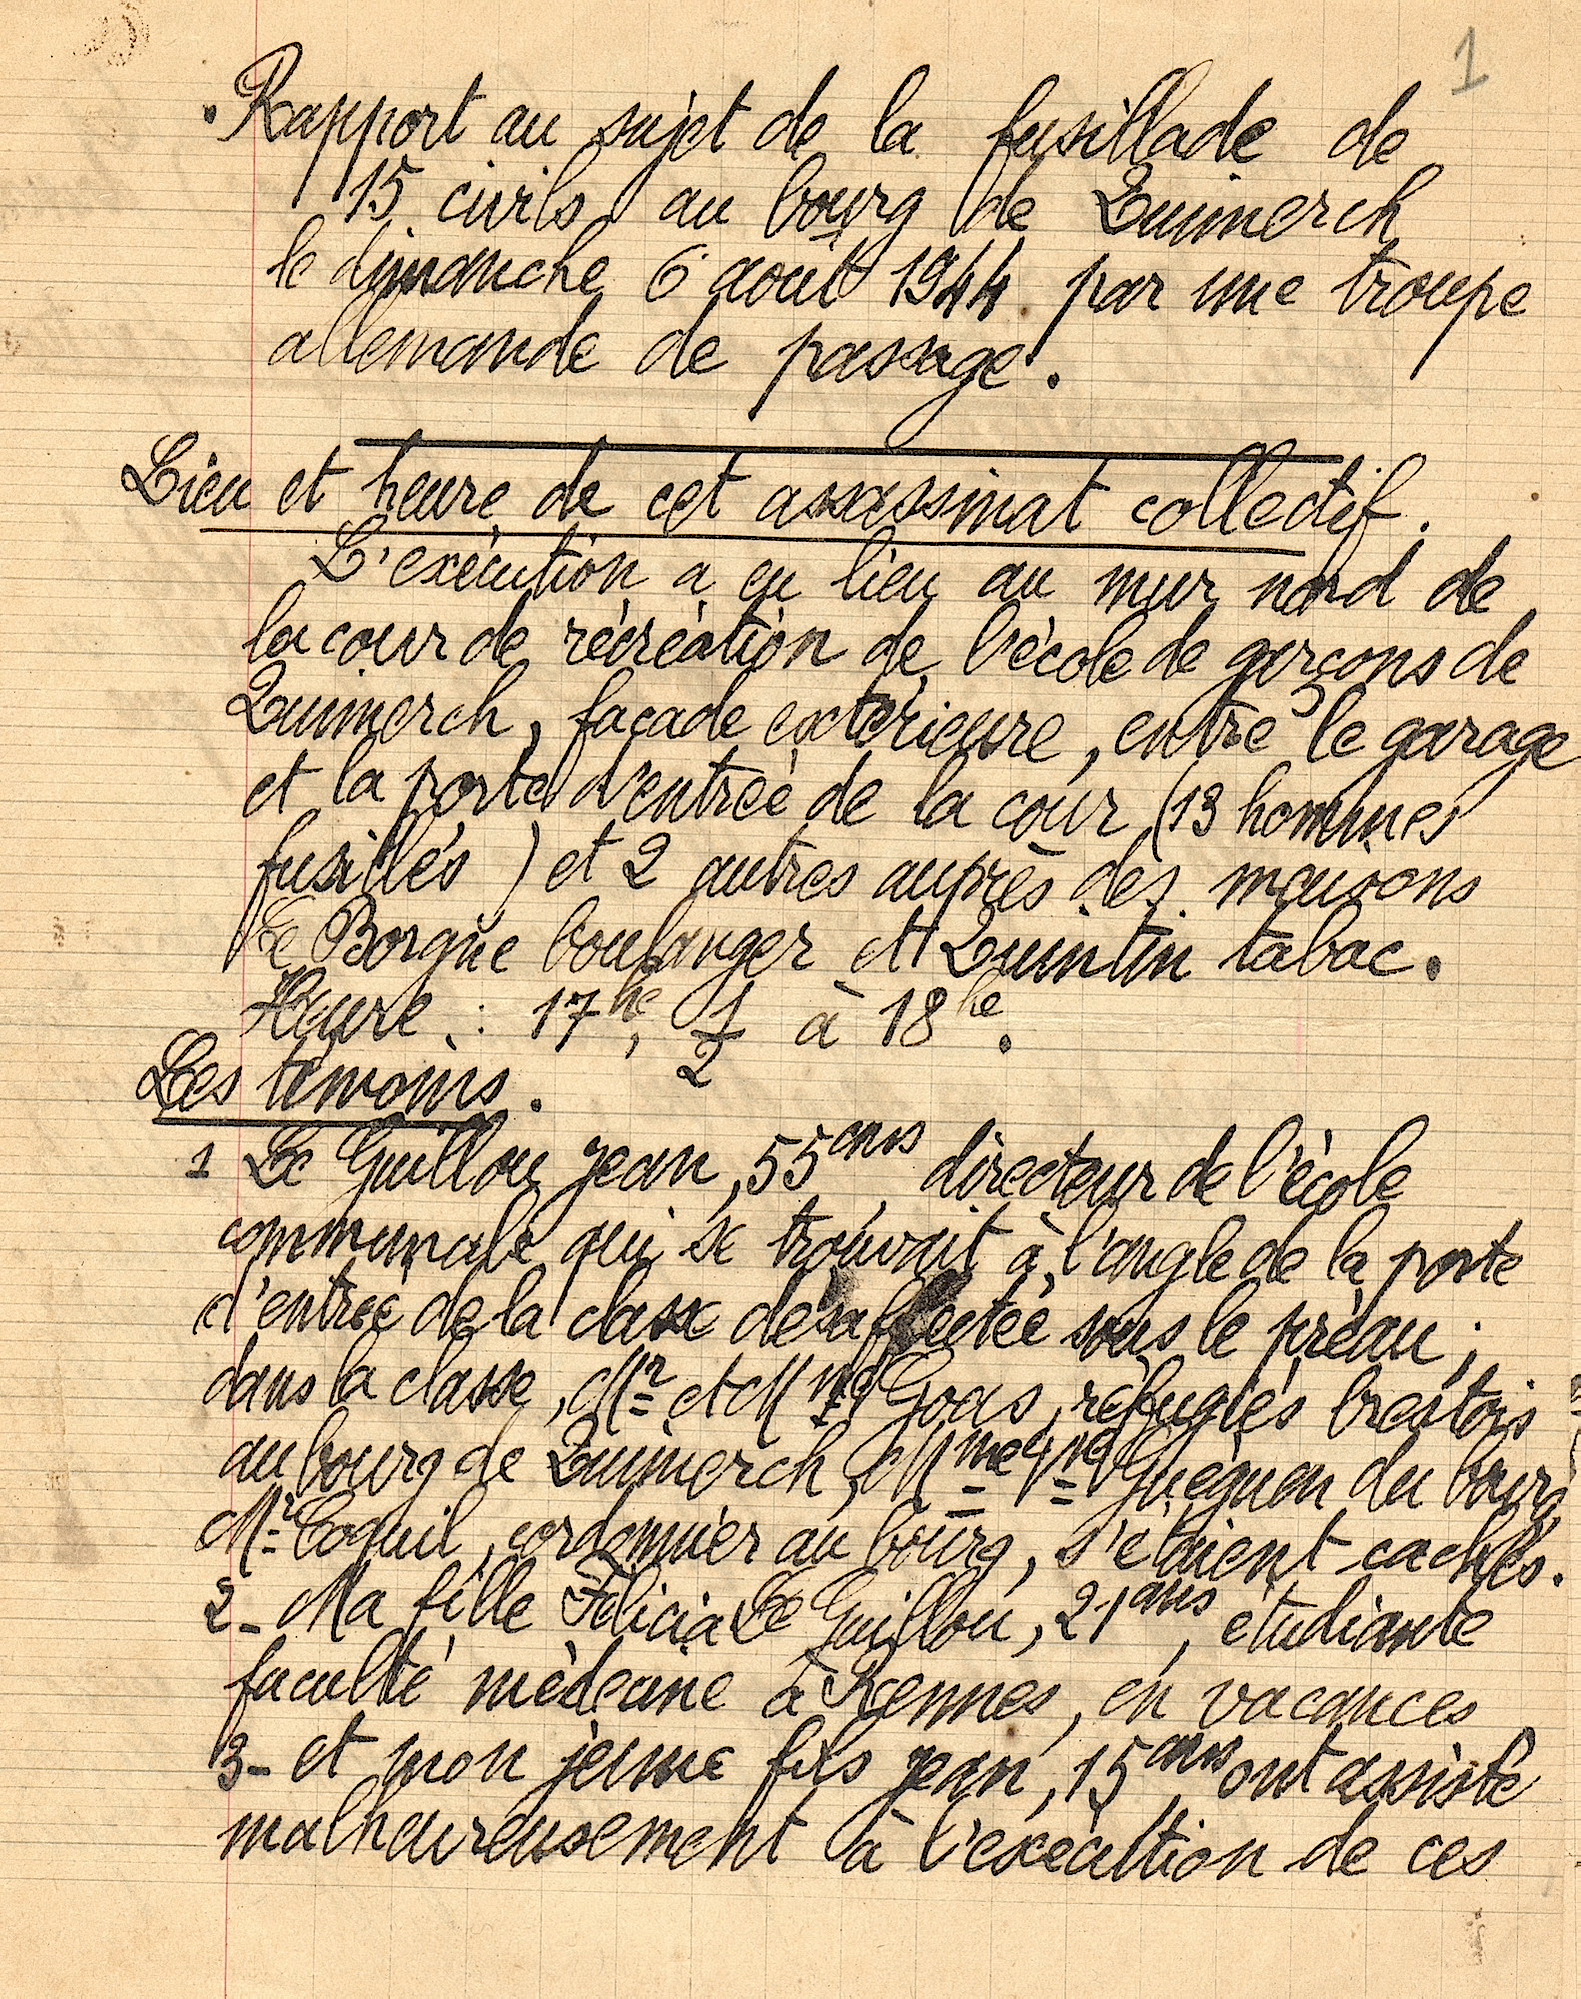 1
Rapport au sujet de la fusillade de
15 civils au bourg de Quimerch
le dimanche 6 août 1944 par une troupe
allemande de passage.
Lieu et heure de cet assassinat collectif.
L'exécution a eu lieu au mur nord de
la cour de récréation de l'école de garçons de
Quimerch, façade extérieure, entre le garage
et la porte d'entrée de la cour (13 hommes
fusillés) et 2 autres auprès des maisons
Le Borgne boulanger et Quintin tabac.
Heure : 17he, 1/2 à 18he.
Les témoins.
1 Le Guillou Jean, 55 ans, directeur de l'école
communale qui se trouvait à l'angle de la porte
d'entrée de la classe désaffectée sous le préau ;
dans la classe, Mr et Mme Goas, réfugiés brestois
au bourg de Quimerch, Mme Vve Guéguen du bourg
Mr Coquil, cordonnier au bourg, s'étaient cachés.
2- Ma fille Félicia Le Guillou, 21 ans, étudiante
faculté médecine à Rennes, en vacances
3- et mon jeune fils Jean, 15 ans ont assisté
malheureusement à l'exécution de ces